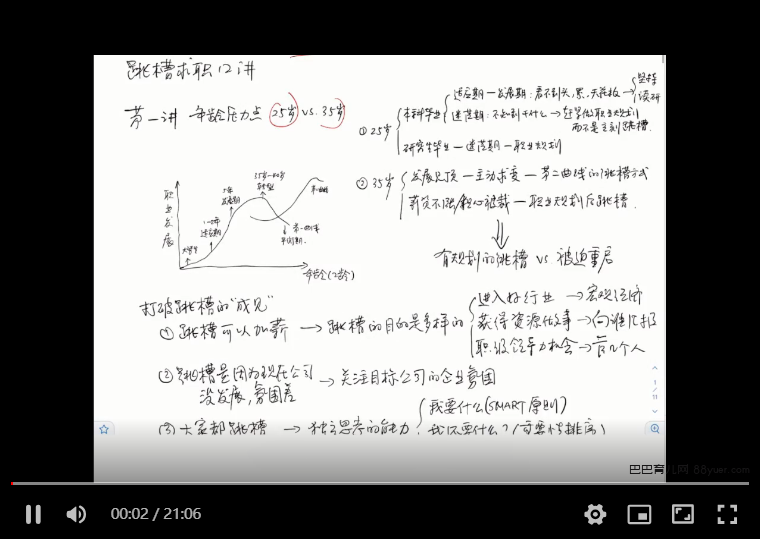 跳槽求职12讲
第一讲 年龄压力点 25岁 vs. 35岁
① 25岁
本科毕业
适应期—发展期:看不到头,累,天花板→
坚持
读研
迷茫期:不知道干什么→在早做职业规划
而不是立刻跳槽.
研究生毕业—迷茫期—职业规划
② 35岁
发展见顶—主动求变—第二曲线的跳槽方式
薪资不涨/担心被裁—职业规划后跳槽.
有规划的跳槽 vs 被迫重启
职业发展
大学生
适应期
发展期
35岁-40岁
转型
平衡期.
年龄(工龄)
打破跳槽的"成见"
① 跳槽可以加薪 → 跳槽的目的是多样的
进入好行业→宏观经济
获得资源做事→向谁汇报
职级领导力机会→管几个人
② 跳槽是因为现在公司
没发展,氛围差
→关注目标公司的企业氛围
③ 大家都跳槽 → 独立思考的能力
我要什么(SMART原则)
我不要什么?(可要性排序)
巴巴育儿网 88yuer.com
00:02 / 21:06